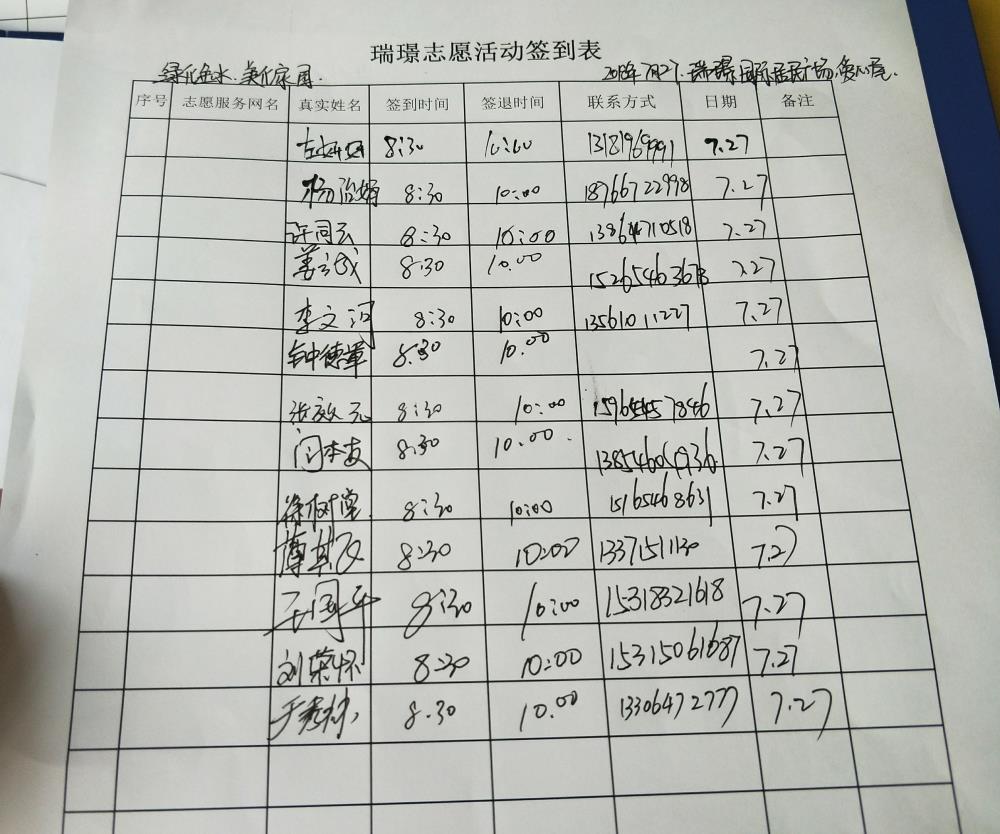 瑞璟志愿活动签到表
绿化金水.美化家园
2018年7月27.瑞璟国际居民广场,爱心屋.
序号 志愿服务网名 真实姓名 签到时间 签退时间 联系方式 日期 备注
8:30 10:00 13181969991 7.27
杨治娟 8:30 10:00 18766722998 7.27
许同云 8:30 10:00 13864710518 7.27
姜立成 8:30 10.00 15265463673 7.27
李文河 8:30 10:00 13561011227 7.27
钟德军 8:30 10.00 7.27
张效元 8:30 10:00 7.27
闫本友 8:30 10.00. 7.27
徐树堂 8:30 10:00 15165468631 7.27
薄其友 8:30 10:00 1337151130 7.27
王国平 8:30 10:00 15318321618 7.27
刘荣怀 8:30 10:00 15315061687 7.27
于秀林 8.30 10.00 13306472777 7.27